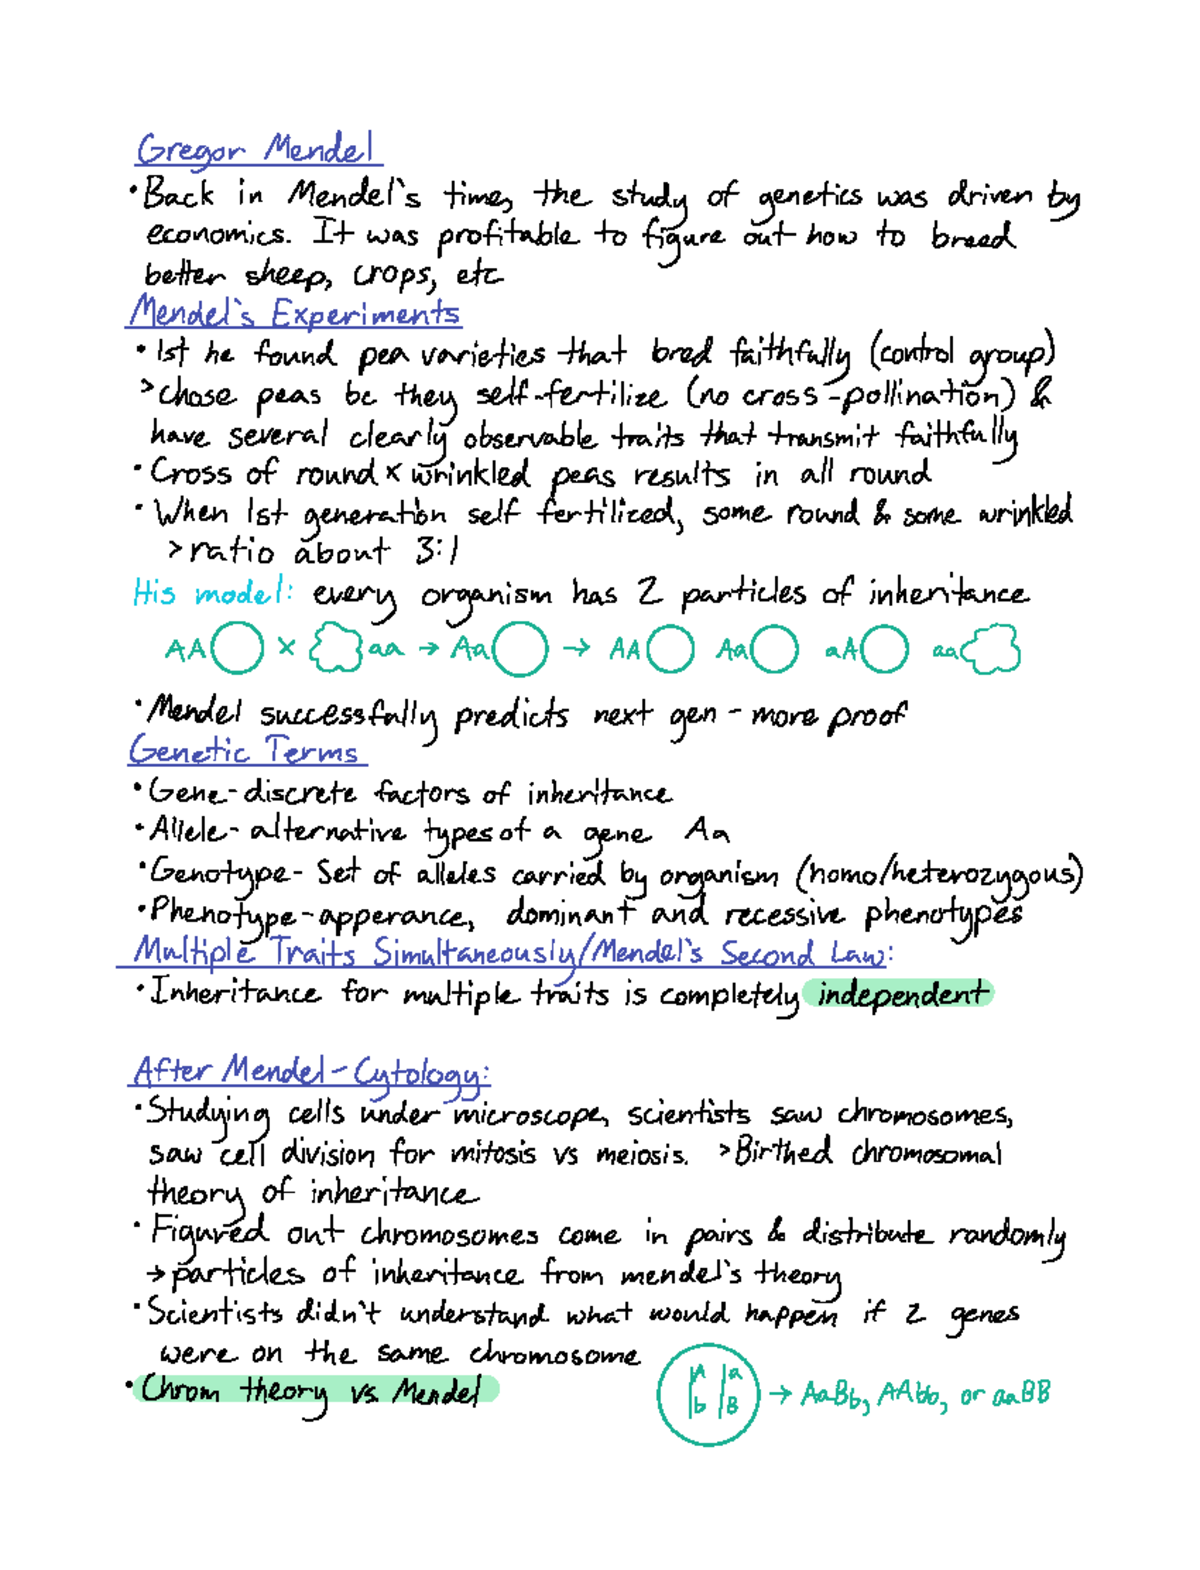 Gregor Mendel
•Back in Mendel's time, the study of genetics was driven by
economics. It was profitable to figure out how to breed
better sheep, crops, etc
Mendel's Experiments
•1st he found pea varieties that bred faithfully (control group)
>chose peas bc they self-fertilize (no cross-pollination) &
have several clearly observable traits that transmit faithfully
•Cross of round x wrinkled peas results in all round
•When 1st generation self fertilized, some round & some wrinkled
>ratio about 3:1
His model: every organism has 2 particles of inheritance
AA x aa → Aa → AA Aa aA aa
•Mendel successfully predicts next gen - more proof
Genetic Terms
•Gene- discrete factors of inheritance
•Allele- alternative types of a gene Aa
•Genotype- Set of alleles carried by organism (homo/heterozygous)
•Phenotype-apperance, dominant and recessive phenotypes
Multiple Traits Simultaneously/Mendel's Second Law:
•Inheritance for multiple traits is completely independent
After Mendel-Cytology:
•Studying cells under microscope, scientists saw chromosomes,
saw cell division for mitosis vs meiosis. >Birthed chromosomal
theory of inheritance
•Figured out chromosomes come in pairs & distribute randomly
→particles of inheritance from mendel's theory
•Scientists didn't understand what would happen if 2 genes
were on the same chromosome
•Chrom theory vs. Mendel
A a
b B
→ AaBb, AAbb, or aaBB